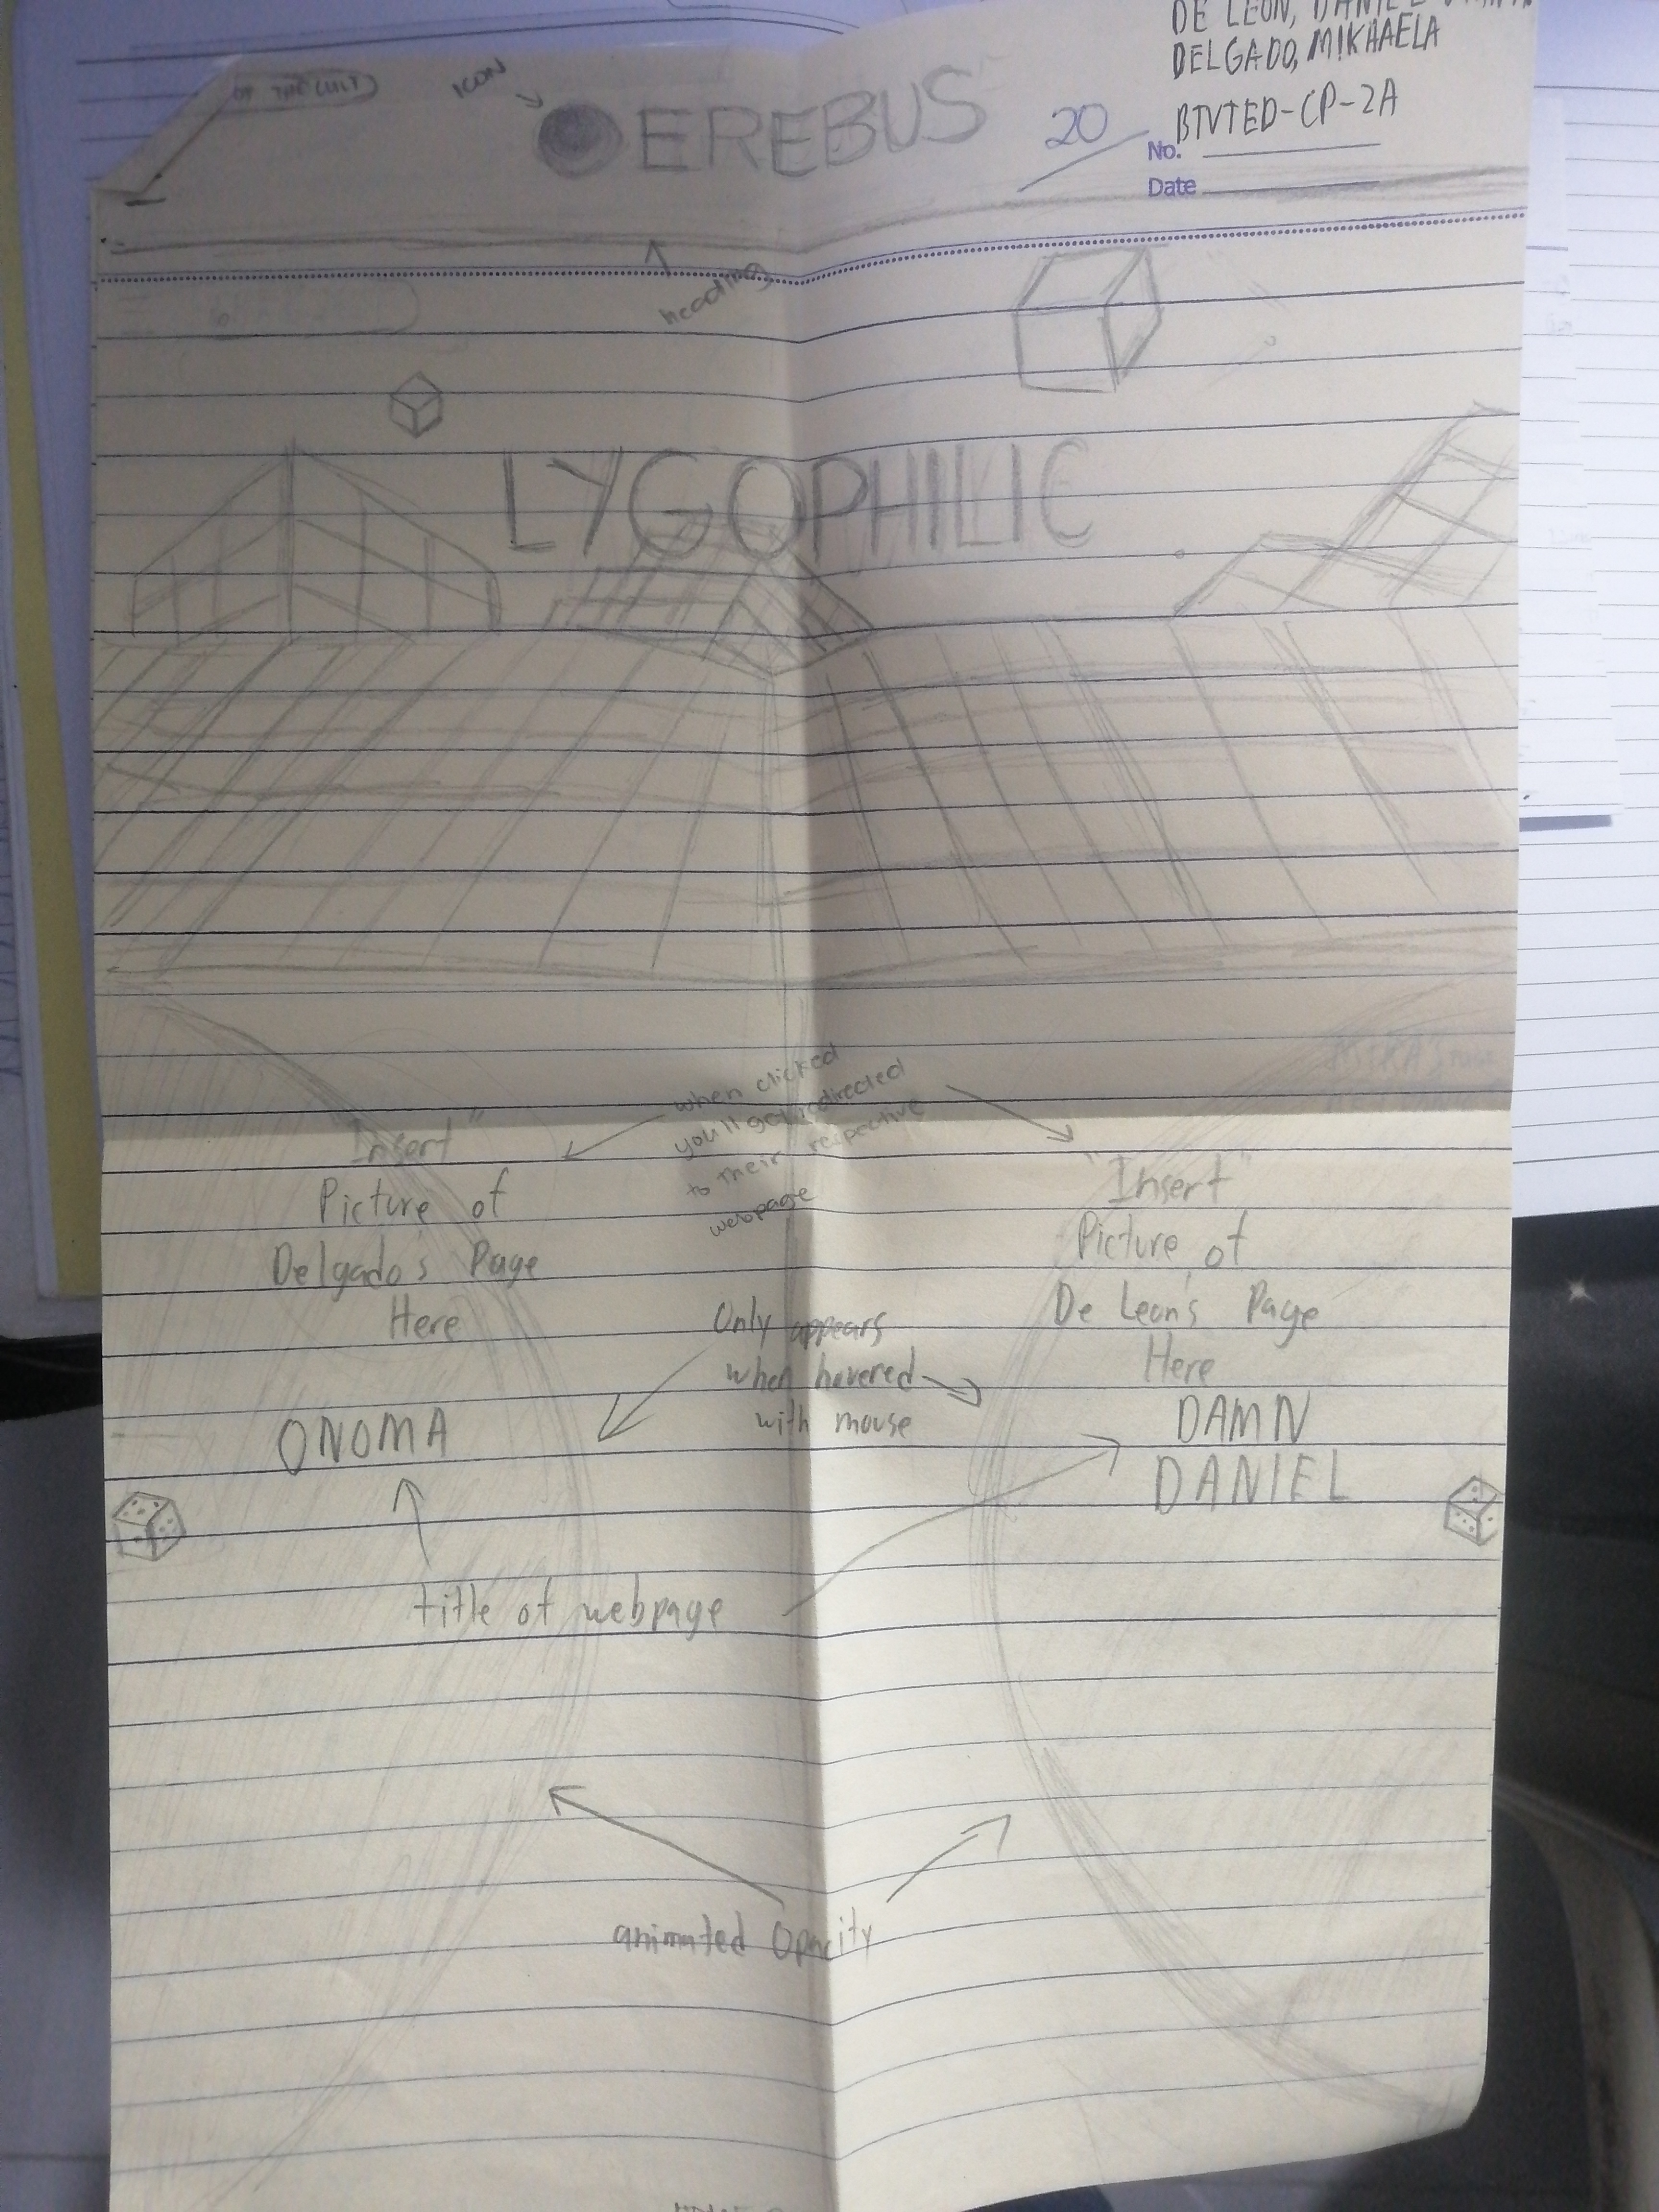 DE LEON, DANIEL
DELGADO, MIKHAELA
BTVTED-CP-2A
ICON
EREBUS
20
No.
Date
heading
LYGOPHILIC
when clicked
you'll get redirected
to their respective
webpage
"Insert"
Picture of
Delgado's Page
Here
"Insert"
Picture of
De Leon's Page
Here
Only appears
when hovered
with mouse
ONOMA
DAMN
DANIEL
title of webpage
animated opacity